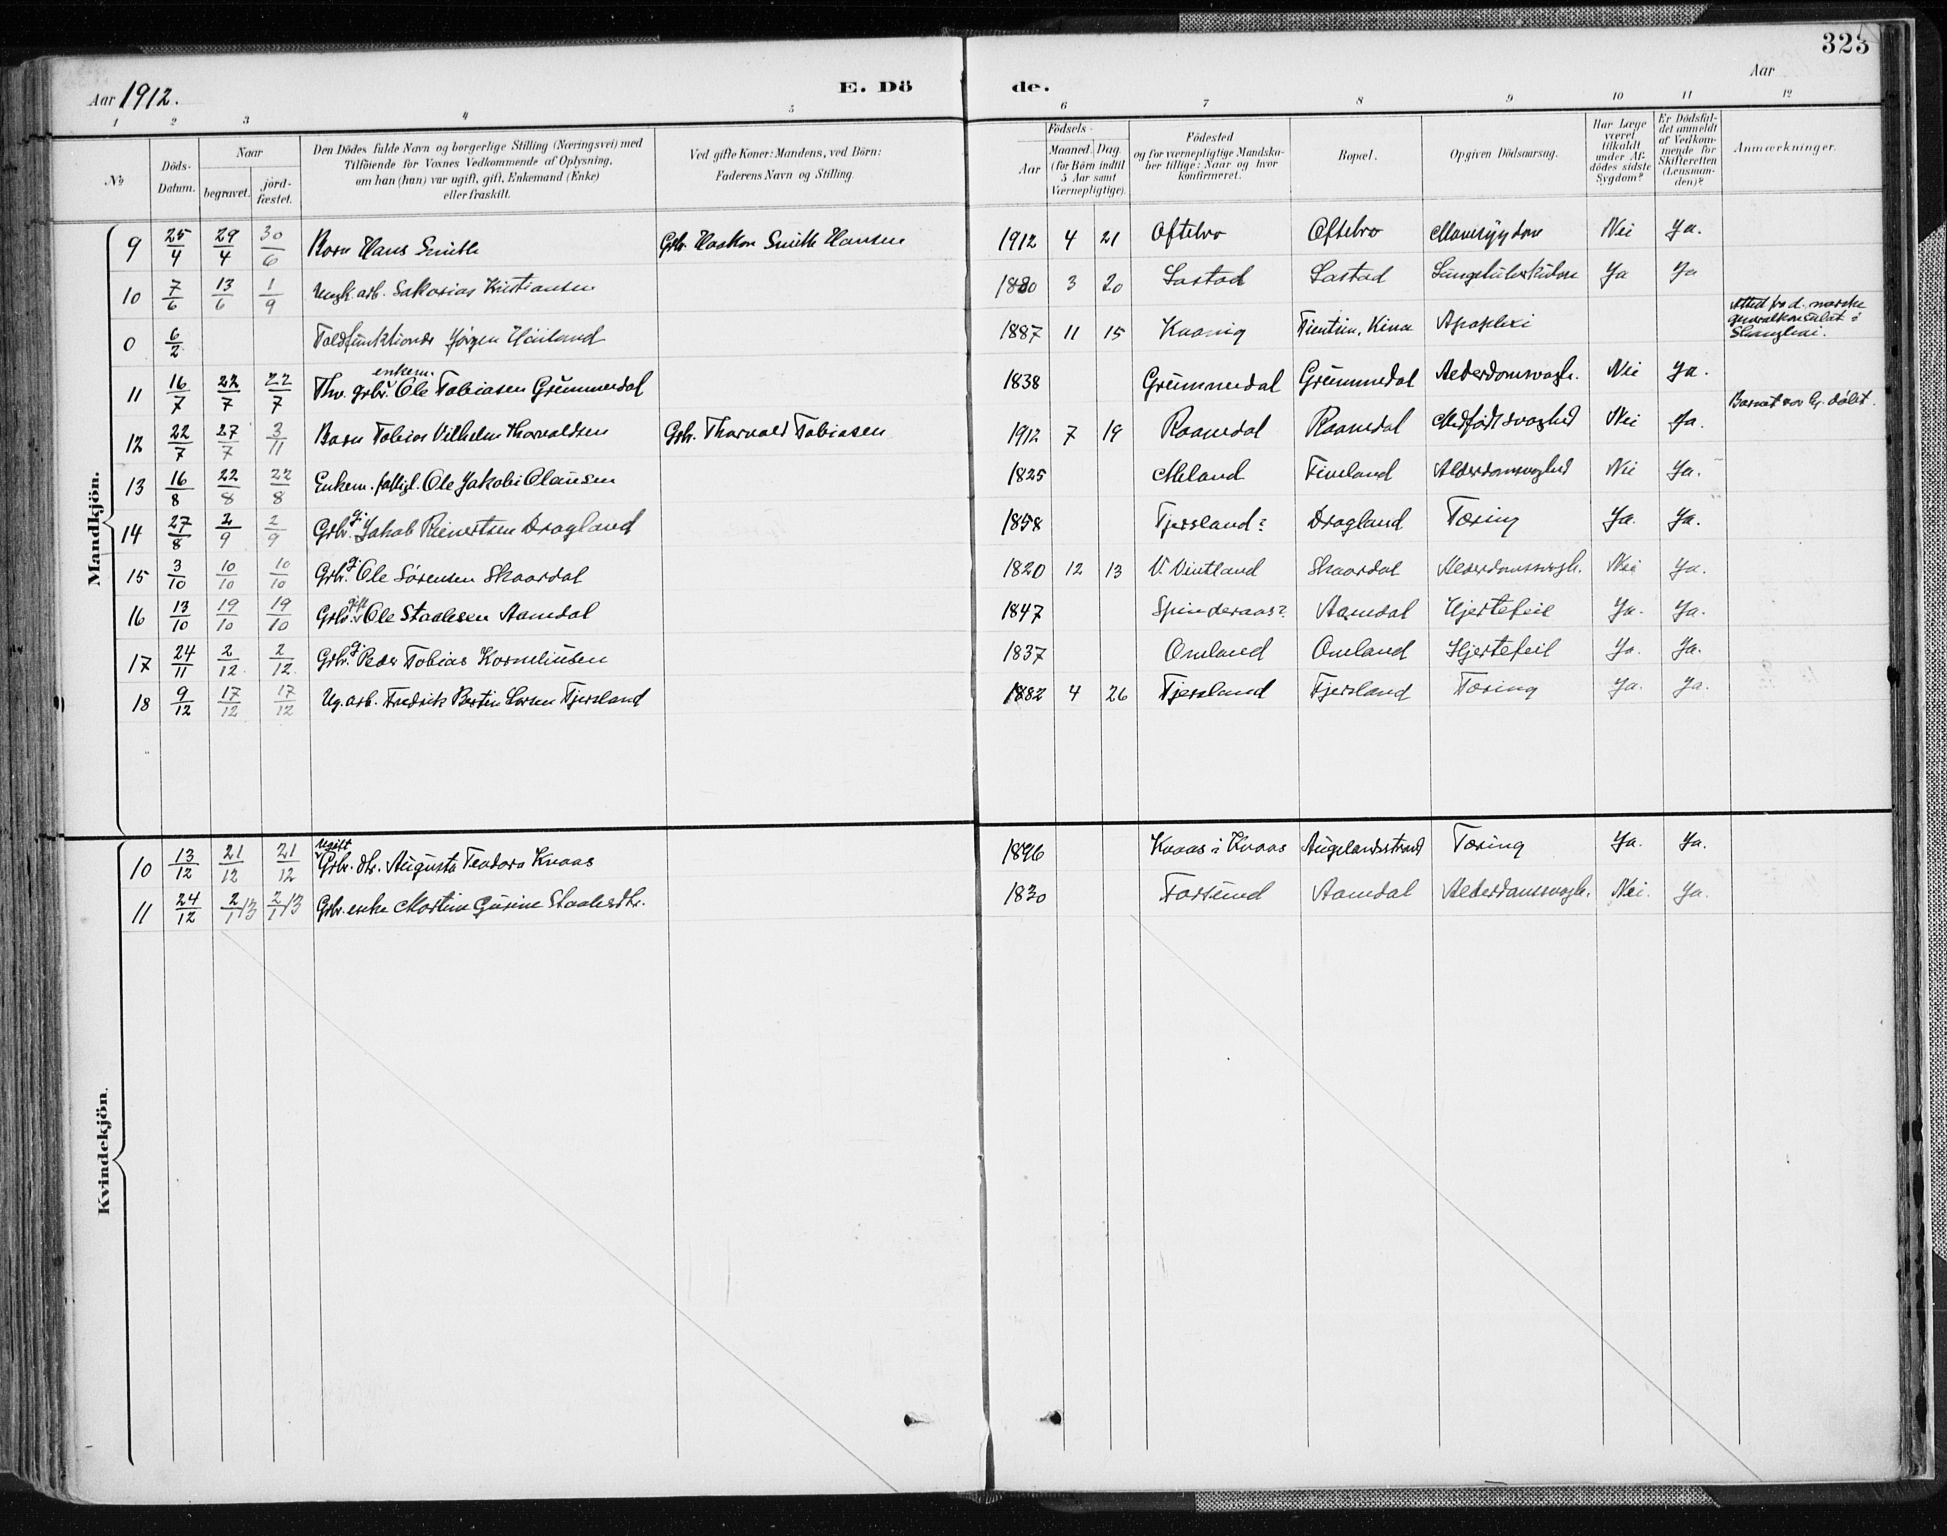 323
Aar 1912.
E. Dö de.
Aar
1 2 3 4 5 6 7 8 9 10 11 12
No
Döds-Datum.
Naar
begravet.
jord-fæstet.
Den Dödes fulde Navn og borgerlige Stilling (Næringsvei) med
Tilföiende for Voxnes Vedkommende af Oplysning,
om han (hun) var ugift, gift, Enkemand (Enke)
eller fraskilt.
Ved gifte Koner: Mandens, ved Börn:
Faderens Navn og Stilling.
Födsels-
Aar
Maaned. Dag.
(for Börn indtil
5 Aar samt
Værnepligtige).
Födested
og for værnepligtige Mandska-
ber tillige: Naar og hvor
konfirmeret.
Bopæl.
Opgiven Dödsaarsag.
Har Læge
været
tilkaldt
under Af-
dödes sidste
Sygdom?
Er Dödsfal-
det anmeldt
af Vedkom-
mende for
Skifteretten
(Lensman-
den)?
Anmærkninger.
Mandkjön.
9 25/4 29/4 30/6 Barn Hans Smith Grb. Haakon Smith Hansen 1912 4 21 Oftebro Oftebro Mavesygdom Nei Ja.
10 7/6 13/6 1/9 Ungk. arb. Sakarias Kristiansen 1880 3 20 Sastad Sastad Lungetuberkulose Ja Ja
0 6/2 Toldfunktionær Jörgen Höiland 1887 11 15 Tientsin, Kina Apoplexi Attest fra d. norske
generalkonsulat i
Shanghai.
11 16/7 22/7 22/7 Fhv. grbr. enkem. Ole Tobiasen Grummedal 1838 Grummedal Grummedal Alderdomssvagh. Nei Ja.
12 22/7 27/7 3/11 Barn Tobias Vilhelm Thorvaldsen Grb. Thorvald Tobiasen 1912 7 19 Raamdal Raamdal Medfödt svaghed Nei Ja. Barnet var hj. döbt.
13 16/8 22/8 22/8 Enkem. fattigl. Ole Jakobi Olausen 1825 Meland Fiveland Alderdomssvaghed Nei Ja.
14 27/8 2/9 2/9 Grbr. g. Jakob Reinertsen Dragland 1858 Tjersland? Dragland Tæring Ja. Ja.
15 3/10 10/10 10/10 Grbr. g. Ole Sörensen Skaardal 1820 12 13 V. Vintland Skaardal Alderdomssvagh. Nei Ja.
16 13/10 19/10 19/10 Grbr. gift Ole Staalesen Aamdal 1847 Spinderaas? Aamdal Hjertefeil Ja. Ja.
17 24/11 2/12 2/12. Grbr. g. Peder Tobias Korneliusen 1837 Omland Omland Hjertefeil Ja. Ja.
18 9/12 17/12 17/12 Ug. arb. Fredrik Bertin Larsen Tjersland 1882 4 26 Tjersland Tjersland Tæring Ja. Ja.
Kvindekjön.
10 13/12 21/12 21/12 ugift Grbr. dtr. Augusta Teodora Knaas 1896 Knaas i Kvaas Augelandsstrand Tæring Ja. Ja.
11 24/12 2/1 13 2/1 13 Grbr. enke Martine Gurine Staalesdtr. 1830 Farsund Aamdal Alderdomssvagh. Nei. Ja.